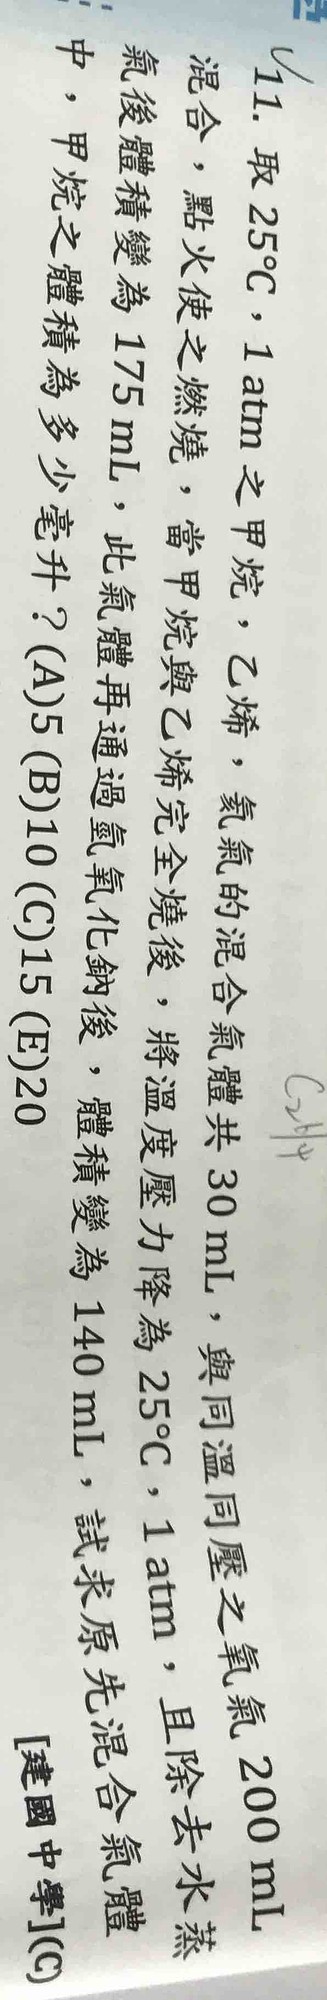 11. 取 25℃，1 atm 之甲烷，乙烯，氦氣的混合氣體共 30 mL，與同溫同壓之氧氣 200 mL
C2H4
混合，點火使之燃燒，當甲烷與乙烯完全燒後，將溫度壓力降為 25℃，1 atm，且除去水蒸
氣後體積變為 175 mL，此氣體再通過氫氧化鈉後，體積變為 140 mL，試求原先混合氣體
中，甲烷之體積為多少毫升？(A)5 (B)10 (C)15 (E)20
[建國中學](C)